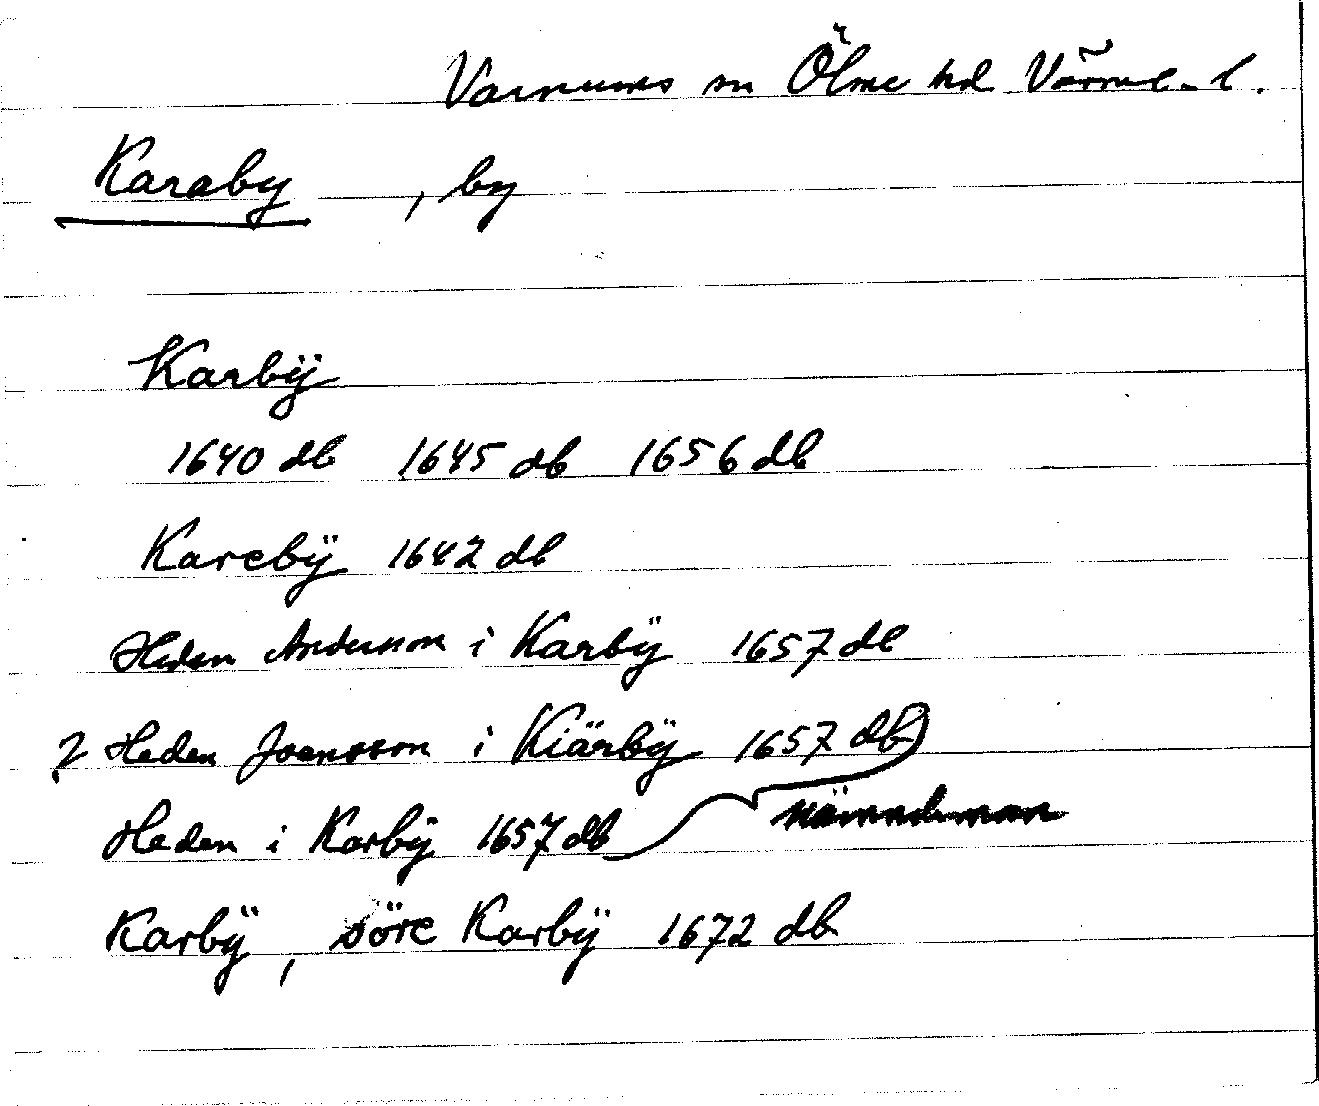 Varnums sn Ölme hd Värml. l.
Karaby , by
Karbÿ
1640 db 1645 db 1656 db
Karebÿ 1642 db
Heden Andersson i Karbÿ 1657 db
? Heden Joensson i Kiärbÿ 1657 db
Heden i Karbÿ 1657 db nämndeman
Karbÿ , söre Karbÿ 1672 db